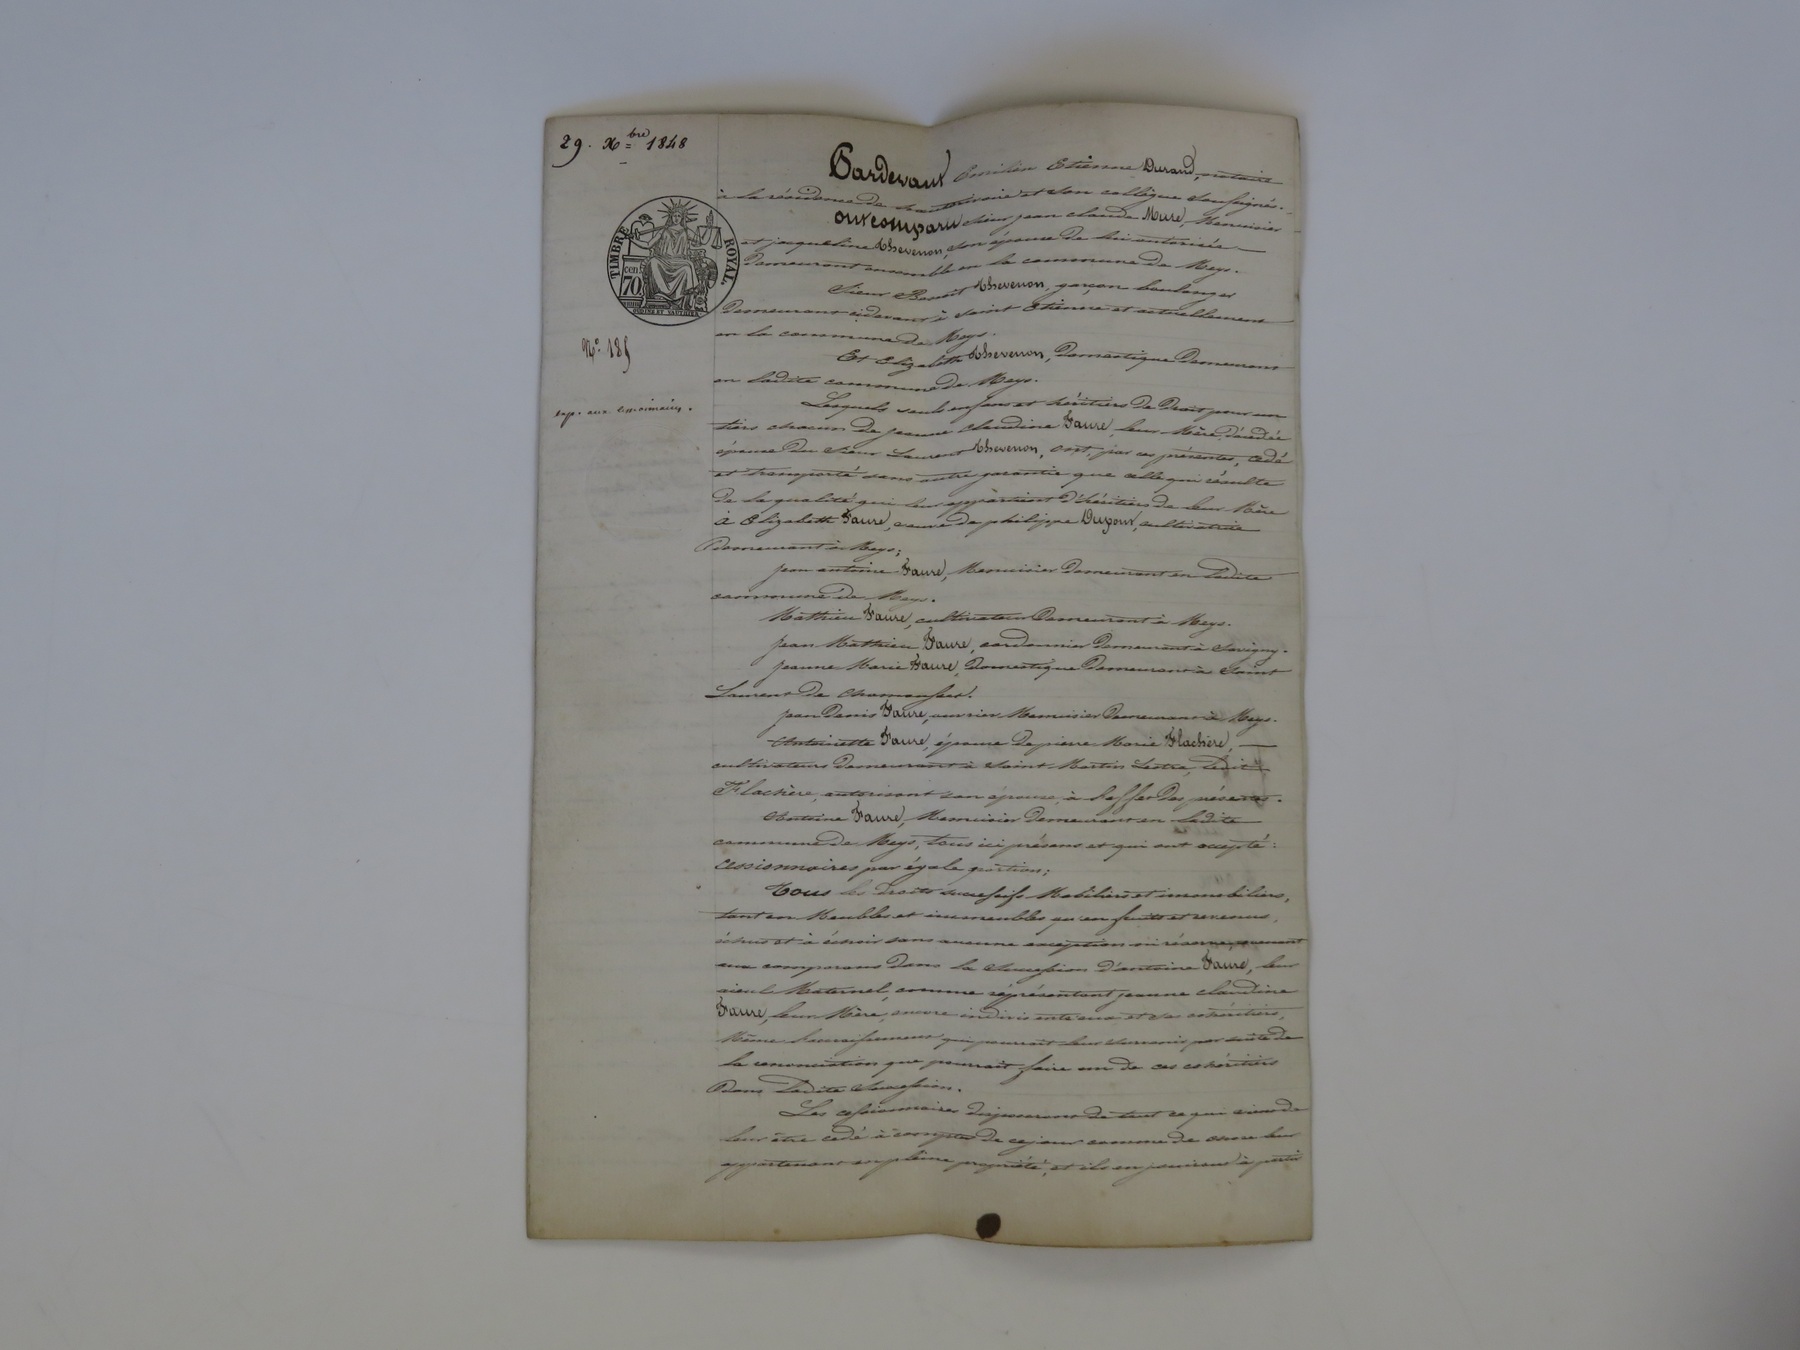 29. Xbre 1848
Pardevant Emilien Etienne Durand, notaire
à la résidence de et son collègue soussignés.
ont comparu sieur jean claude Mure, Menuisier
et jacqueline Thevenon, son épouse de lui autorisée
Demeurant ensemble en la commune de Meys.
TIMBRE ROYAL.
cen. 70
Sieur Benoit Thevenon, garçon boulanger
Demeurant cidevant à Saint Etienne et actuellement
en la commune de Meys.
No. 185
Et Elizabeth Thevenon, Domestique Demeurant
en ladite commune de Meys.
exp. aux
Lesquels seuls enfans et héritiers de Droit pour un
tiers chacun de jeanne claudine Faure, leur Mère, décédée
épouse du sieur Laurent Thevenon, ont, par ces présentes, cédé
et transporté sans autre garantie que celle qui résulte
de la qualité qui leur appartient d'héritiers de leur Mère
à Elizabeth Faure, veuve de philippe Dupont, cultivatrice
Demeurant à Meys;
jean antoine Faure, Menuisier Demeurant en ladite
commune de Meys.
Mathieu Faure, cultivateur Demeurant à Meys.
jean Mathieu Faure, cordonnier Demeurant à Savigny.
jeanne Marie Faure, Domestique Demeurant à Saint
Laurent de chamousset.
jean Denis Faure, ouvrier Menuisier Demeurant à Meys.
Antoinette Faure, épouse de pierre Marie Flachère,
cultivateurs Demeurant à Saint Martin Lestra, ledit
Flachère, autorisant son épouse, à l'effet des présentes.
Antoine Faure, Menuisier Demeurant en ladite
commune de Meys, tous ici présens et qui ont accepté:
cessionnaires par égale portion;
Tous les Droits successifs Mobiliers et immobiliers,
tant en Meubles et immeubles qu'en fruits et revenus,
échus et à échoir sans aucune exception ni réserve, revenant
aux comparans dans la succession d'antoine Faure, leur
aieul Maternel, comme représentant jeanne claudine
Faure, leur Mère, encore indivis entre eux et ses cohéritiers,
Même l'accroissement qui pourrait leur survenir par suite de
la renonciation que pourrait faire un de ces cohéritiers
Dans ladite succession.
Les cessionnaires disposeront de tout ce qui vient de
leur être cédé à compter de ce jour comme de chose leur
appartenant en pleine propriété, et ils en jouiront à partir